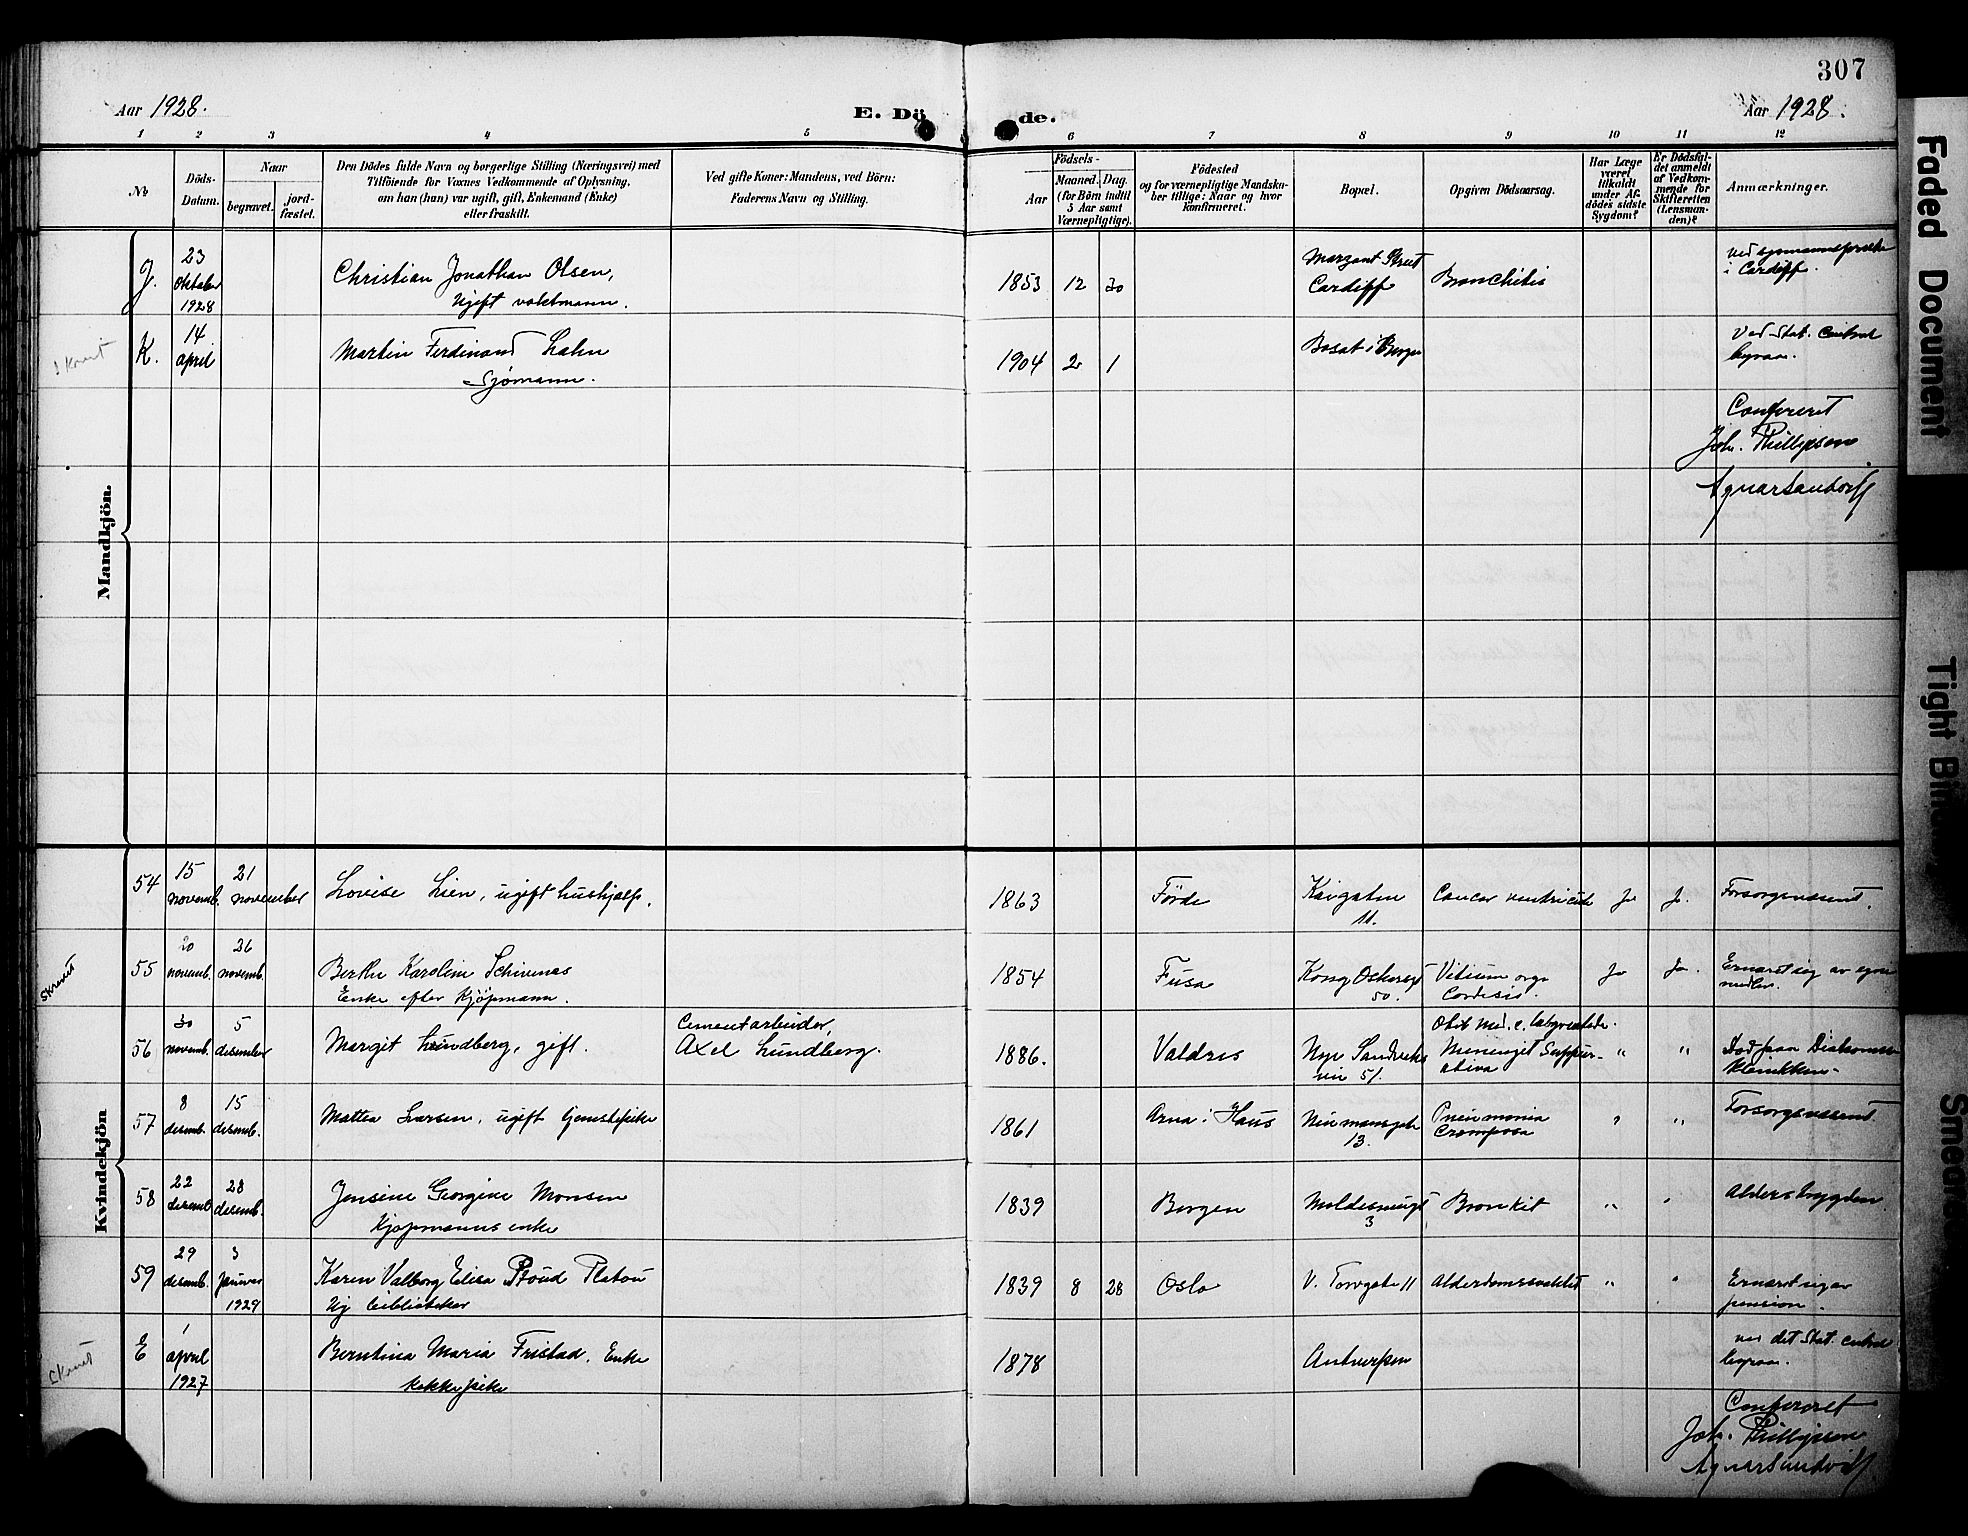 307
Aar 1928.
E. Dö
de.
Aar 1928.
1 2 3 4 5 6 7 8 9 10 11 12
No
Döds-
Datum.
Naar
begravet.
jord-
fæstet.
Den Dödes fulde Navn og borgerlige Stilling (Næringsvei) med
Tilföiende for Voxnes Vedkommende af Oplysning,
om han (hun) var ugift, gift, Enkemand (Enke)
eller fraskilt.
Ved gifte Koner: Mandens, ved Börn:
Faderens Navn og Stilling.
Födsels-
Aar
Maaned.
Dag.
(for Börn indtil
5 Aar samt
Værnepligtige).
Födested
og for værnepligtige Mandskaber
tillige: Naar og hvor
konfirmeret.
Bopæl.
Opgiven Dödsaarsag.
Har Læge
været
tilkaldt
under Afdödes
sidste
Sygdom?
Er Dödsfaldet
anmeldt
af Vedkommende
for
Skifteretten
(Lensmanden)?
Anmærkninger.
Mandkjön.
J.
23
Oktober
1928
Christian Jonathan Olsen,
Ugift vaktmann.
1853 12 30
Street
Cardiff
Bronchitis
i Cardiff.
K.
14
april
Martin Ferdinand Lahn
Sjömann.
1904 2 1
Bosat i Bergen
Ved Stat. Central
byraa.
Confereret
Joh. Phillipsen
Kvindekjön
54
15
novemb.
21
november
Lovise Lien, ugift hushjælp.
1863
Förde
Kaigaten
11.
Cancer ventriculi
Ja
Ja.
Forsorgsvæsenet.
55
20
novemb.
26
novemb.
Berthe Karoline Schivenas
Enke efter Kjöpmann.
1854
Fusa
Kong Oskarsgt
50.
Vitium org.
Cordis
Ja
Ja.
Ernæret sig av egne
midler.
56
30
novemb.
5
desember
Margit Lundberg, gift.
Cementarbeider,
Axel Lundberg.
1886.
Valdres
Nye Sandviks
vei 51.
Otit med.
Meningit Suppur-
ativa
"
"
Död paa Diakonisse
klinikken
57
8
desemb.
15
desemb.
Mattea Larsen, ugift tjenestepike
1861
Arna i Haus
13.
Pneumonia
Crouposa
"
"
Forsorgsvæsenet.
58
22
desemb.
28
desemb.
Jensine Georgine Monsen
Kjöpmanns enke
1839
Bergen
3
Bronkit
"
"
Alderstrygden
59
29
desemb.
3
januar
1929
Karen Valborg Elisa Stoud Platou
Ug bibliotekar
1839 8 28
Oslo
V. Torvgate 11
Alderdomssvakhet
"
"
Ernæret sig av
pension.
E
1
april
1927
Berntina Maria Fristad, Enke
kokkepike
1878
Antwerpen
ved det Stat. Central
byraa.
Confereret
Joh. Phillipsen
Faded Document
Tight Bin
Smeared